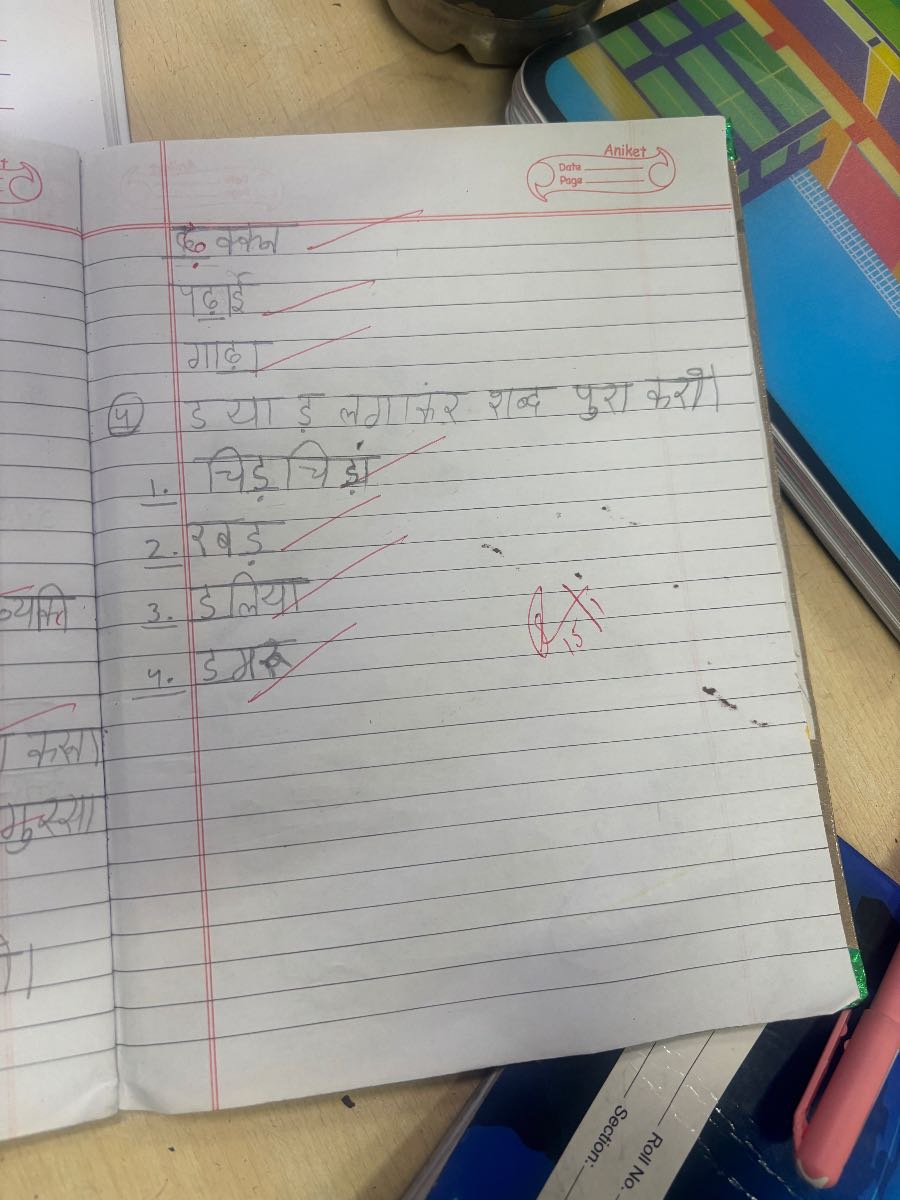 Aniket
Date
Page
ढक्कन
पढ़ाई
गाढ़ा
५ ड या ड़ लगाकर शब्द पुरा करो।
1. चिड़चिड़ा
2. रबड़
3. डलिया
४. डमरू
व्यक्ति
करना
गुस्सा
Roll No.
Section: